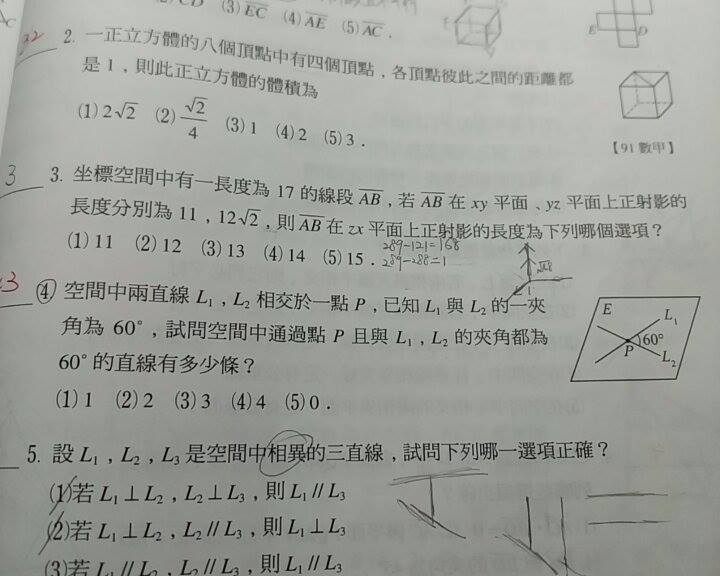 (3) EC (4) AE (5) AC .
E D
32
2. 一正立方體的八個頂點中有四個頂點,各頂點彼此之間的距離都
是 1,則此正立方體的體積為
(1) 2√2 (2) √2/4 (3) 1 (4) 2 (5) 3 .
【91 數甲】
3
3. 坐標空間中有一長度為 17 的線段 AB,若 AB 在 xy 平面、yz 平面上正射影的
長度分別為 11,12√2,則 AB 在 zx 平面上正射影的長度為下列哪個選項?
(1) 11 (2) 12 (3) 13 (4) 14 (5) 15 .
289-121=168
289-288=1
3
④ 空間中兩直線 L₁,L₂ 相交於一點 P,已知 L₁ 與 L₂ 的一夾
角為 60°,試問空間中通過點 P 且與 L₁,L₂ 的夾角都為
60° 的直線有多少條?
(1) 1 (2) 2 (3) 3 (4) 4 (5) 0 .
E L₁
60°
P L₂
5. 設 L₁,L₂,L₃ 是空間中相異的三直線,試問下列哪一選項正確?
(1) 若 L₁⊥L₂,L₂⊥L₃,則 L₁∥L₃
(2) 若 L₁⊥L₂,L₂∥L₃,則 L₁⊥L₃
(3) 若 L₁∥L₂,L₂∥L₃,則 L₁∥L₃